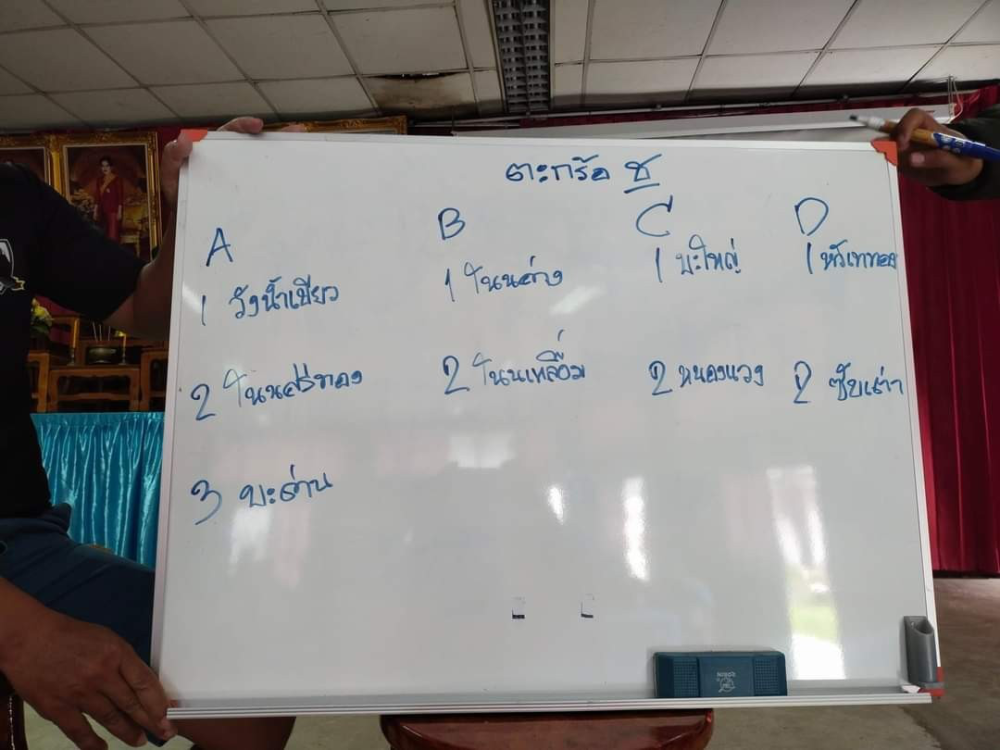 ตะกร้อ ช
A
B
C
D
1 วังน้ำเขียว
1 โนนค่าง
1 มะใหญ่
1 หัวเททอง
2 โนนศรีทอง
2 โนนเหลื่อม
2 หนองแวง
2 ซับเต่า
3